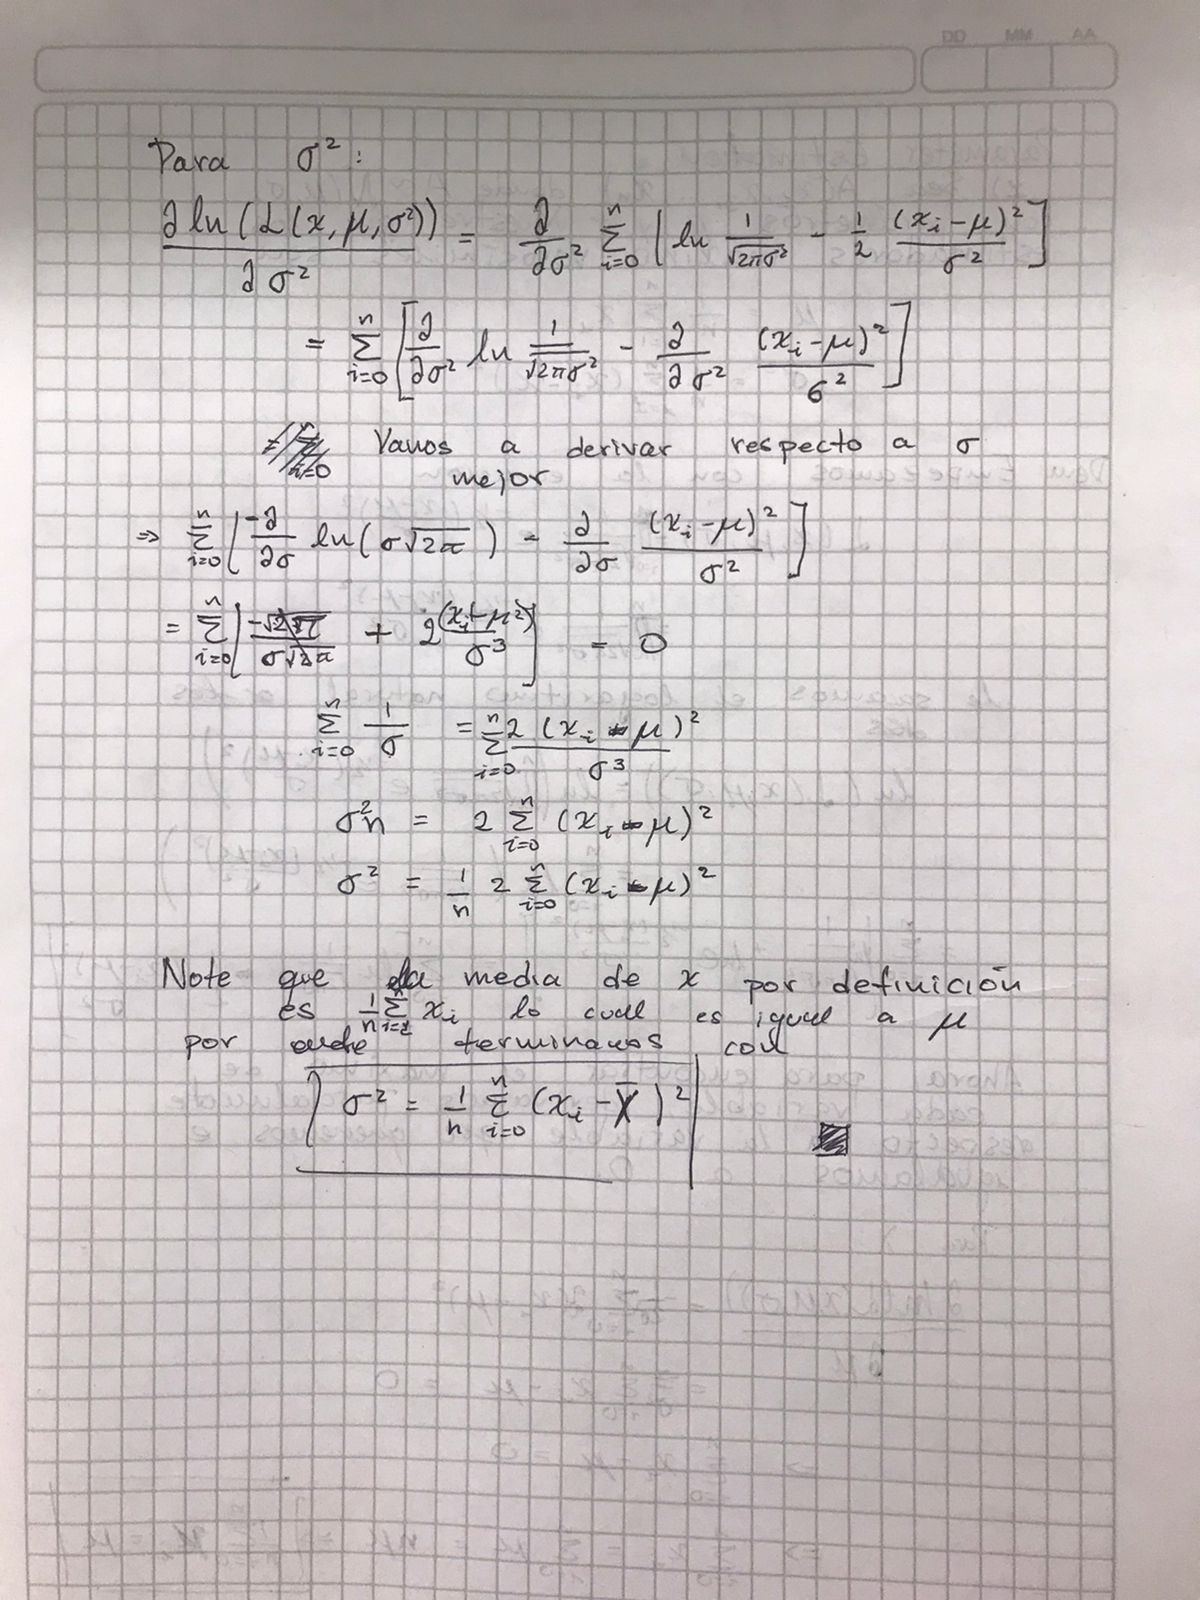 DD MM AA
Para σ²:
∂ ln(L(x, μ, σ²)) / ∂σ² = ∂/∂σ² Σ_{i=0}^{n} [ln 1/√2πσ² - 1/2 (x_i - μ)²/σ²]
= Σ_{i=0}^{n} [∂/∂σ² ln 1/√2πσ² - ∂/∂σ² (x_i - μ)²/σ²]
Vamos a derivar respecto a σ
mejor
⇒ Σ_{i=0}^{n} [-∂/∂σ ln(σ√2π) - ∂/∂σ (x_i - μ)²/σ²]
= Σ_{i=0}^{n} [-√2π/σ√2π + 2(x_i - μ²)/σ³] = 0
Σ_{i=0}^{n} 1/σ = Σ_{i=0}^{n} 2(x_i - μ)²/σ³
σ²n = 2 Σ_{i=0}^{n} (x_i - μ)²
σ² = 1/n 2 Σ_{i=0}^{n} (x_i - μ)²
Note que la media de x por definición
es 1/n Σ_{i=1}^{n} x_i lo cual es igual a μ
por ende terminamos con
σ² = 1/n Σ_{i=0}^{n} (x_i - X̄)²